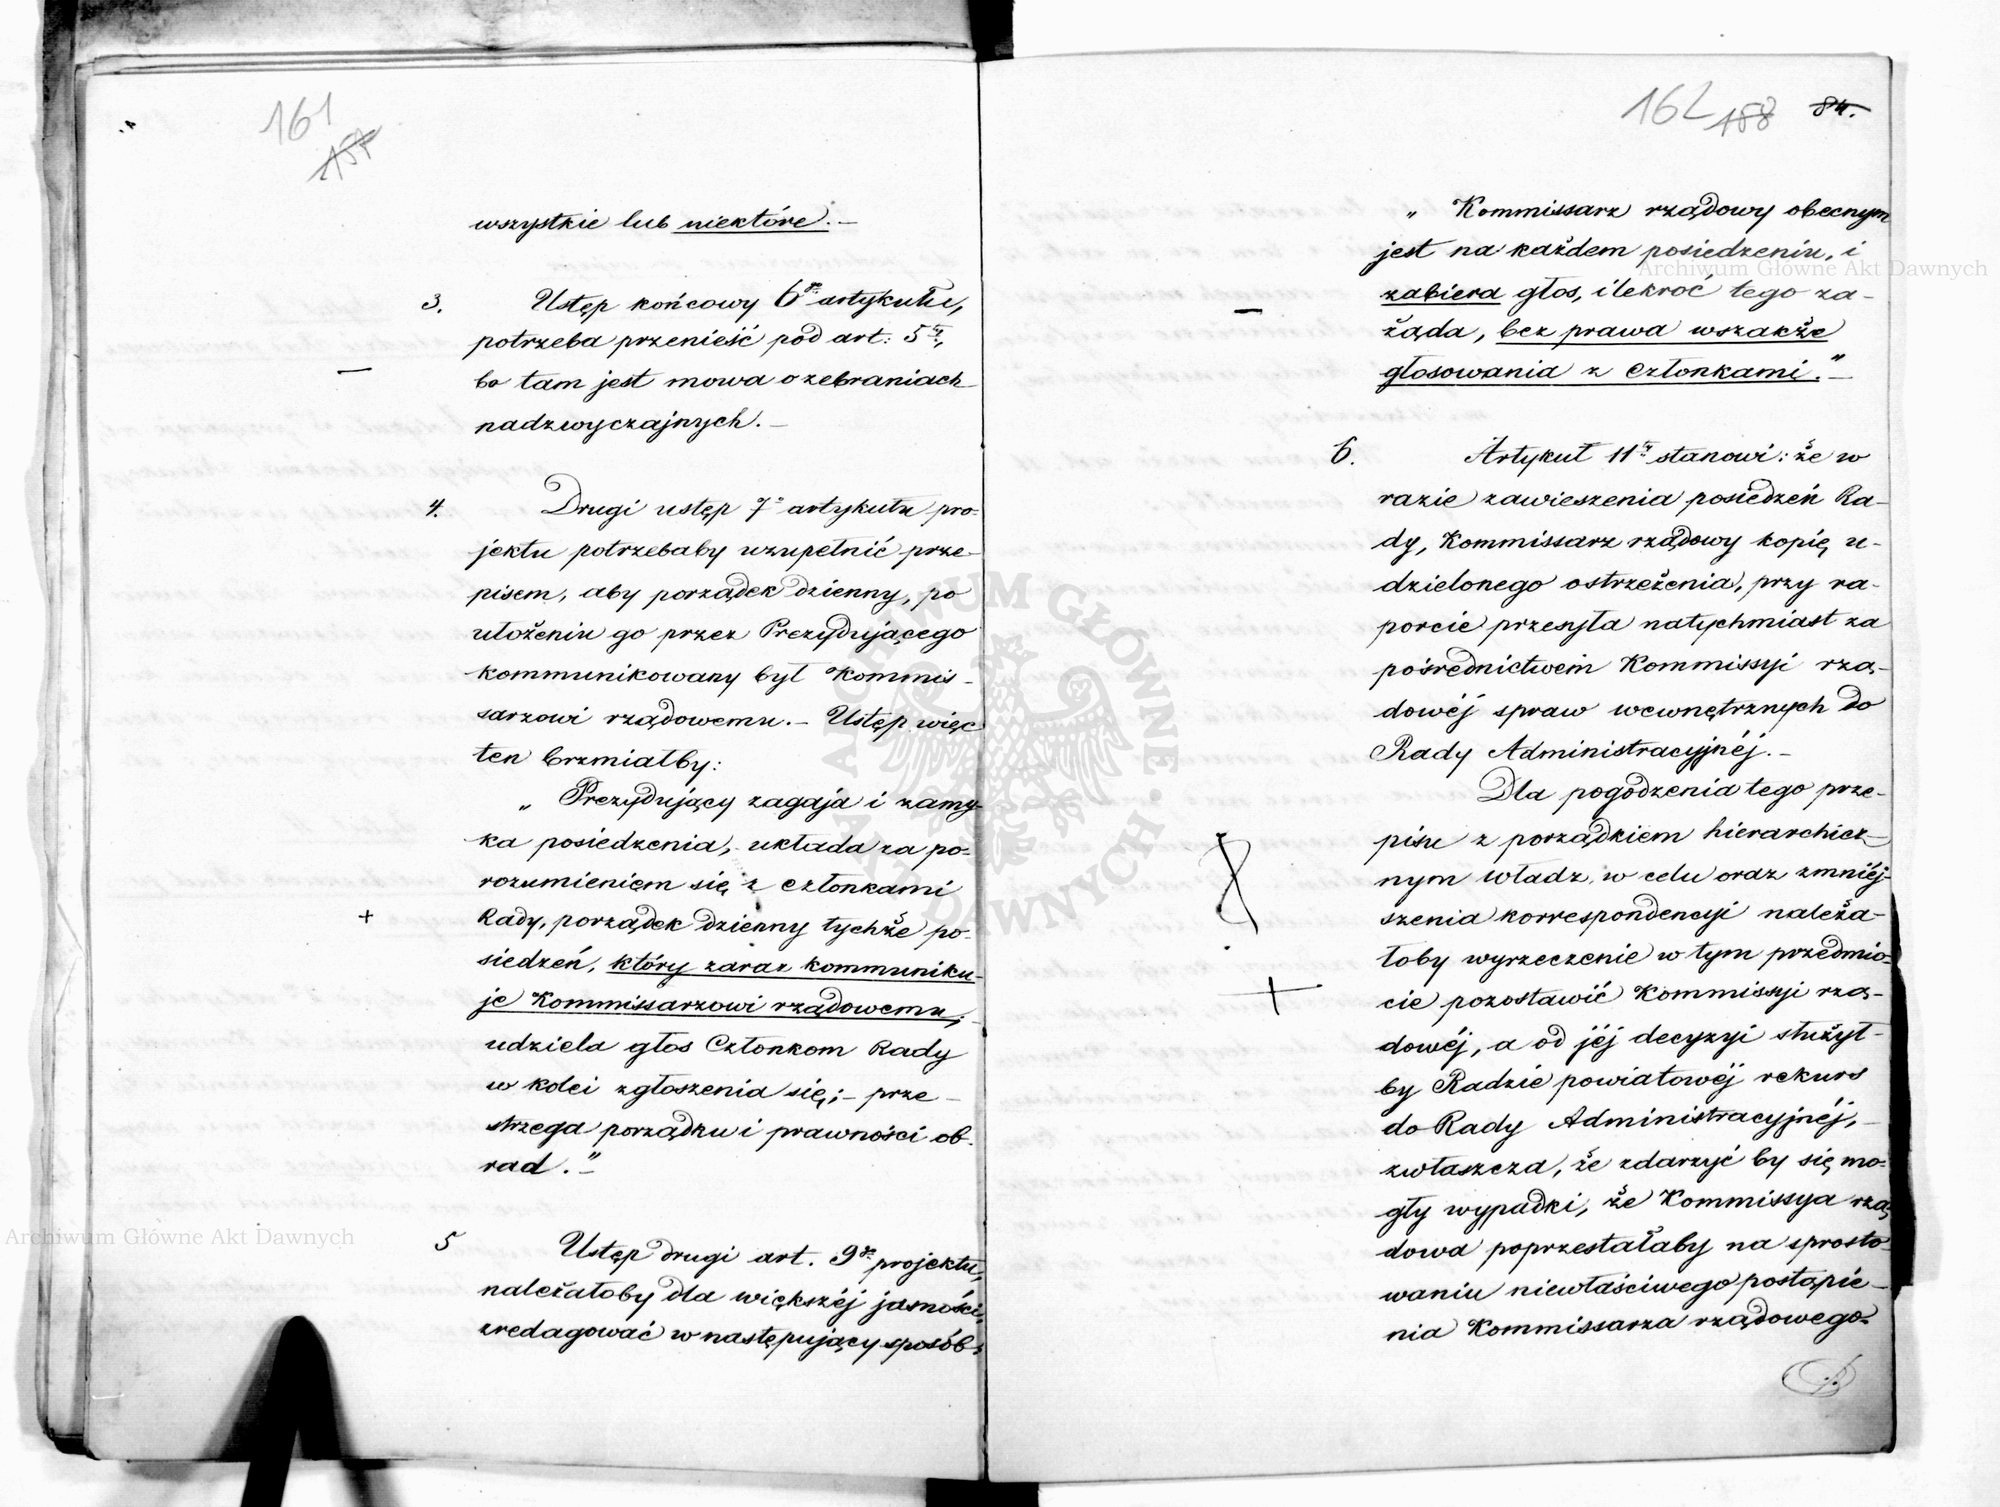 161
157
wszystkie lub niektóre. —
3. Ustęp końcowy 6go artykułu,
potrzeba przenieść pod art: 5ty,
bo tam jest mowa o zebraniach
nadzwyczajnych. —
4. Drugi ustęp 7o artykułu pro-
jektu potrzebaby uzupełnić prze-
pisem, aby porządek dzienny, po
ułożeniu go przez Prezydującego
kommunikowany był Kommis-
sarzowi rządowemu. — Ustęp więc
ten brzmiałby:
„ Prezydujący zagaja i zamy-
ka posiedzenia, układa za po-
rozumieniem się z członkami
+ Rady, porządek dzienny tychże po-
siedzeń, który zaraz kommuniku-
je Kommissarzowi rządowemu;
udziela głos Członkom Rady
w kolei zgłoszenia się; — prze-
strzega porządku i prawności ob-
rad." —
5 Ustęp drugi art. 9go projektu,
należałoby dla większéj jasności,
zredagować w następujący sposób:
162 158 84.
„ Kommissarz rządowy obecnym
jest na każdem posiedzeniu, i
zabiera głos, ilekroć tego za-
żąda, bez prawa wszakże
głosowania z Członkami." —
6. Artykuł 11ty stanowi: że w
razie zawieszenia posiedzeń Ra-
dy, Kommissarz rządowy kopię u-
dzielonego ostrzeżenia, przy ra-
porcie przesyła natychmiast za
pośrednictwem Kommissyi rzą-
dowéj spraw wewnętrznych do
Rady Administracyjnéj. —
Dla pogodzenia tego prze-
pisu z porządkiem hierarchicz-
nym władz, w celu oraz zmniéj-
szenia korrespondencyi należa-
łoby wyrzeczenie w tym przedmio-
+ cie pozostawić Kommissyi rzą-
dowéj, a od jéj decyzyi służył-
by Radzie powiatowéj rekurs
do Rady Administracyjnéj, —
zwłaszcza, że zdarzyć by się mo-
gły wypadki, że Kommissya rzą-
dowa poprzestałaby na sprosto-
waniu niewłaściwego postąpie-
nia Kommissarza rządowego.
Archiwum Główne Akt Dawnych
Archiwum Główne Akt Dawnych
ARCHIWUM GŁÓWNE AKT DAWNYCH